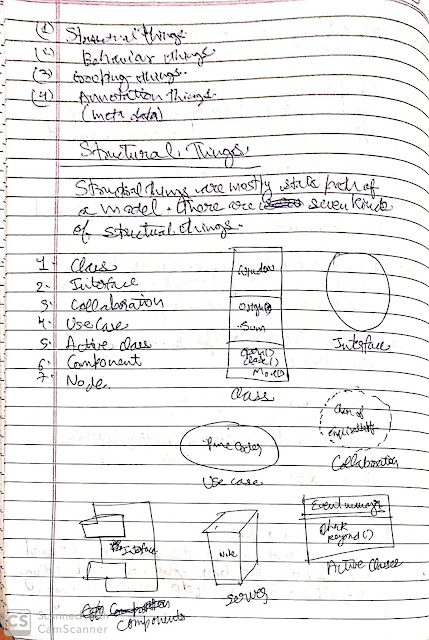 (1) Structural things
(2) Behavior things
(3) Grouping things.
(4) Annotation things.
(meta data)
Structural Things.
Structural things are mostly static parts of
a model. there are seven kinds
of structural things.
1. Class
2. Interface
3. Collaboration
4. Use Case
5. Active class
6. Component
7. Node.
Window
Origin
Size
open()
close()
Move()
Class
Interface
Chain of
Collaboration
Place Order
Use case
Interface
Components
Node
Server
Event manager
Active Classes
CS
Scanned with
CamScanner